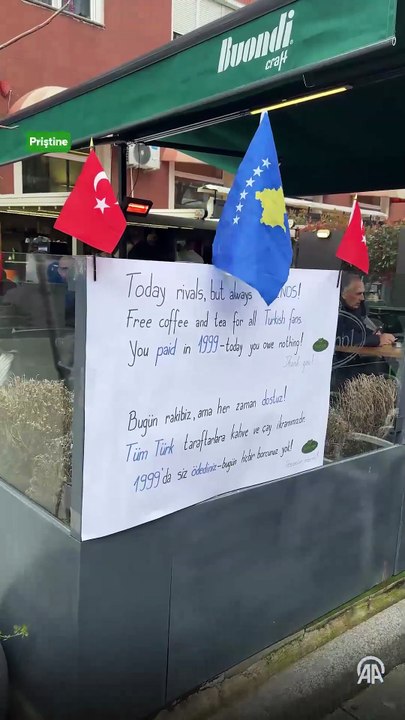 Buondi
craft
Priştine
Today rivals, but always
Free coffee and tea for all Turkish fans.
You paid in 1999-today you owe nothing!
Thank you!
Bugün rakibiz, ama her zaman dostuz!
Tüm Türk taraftarlara kahve ve çay ikramımızdır.
1999'da siz ödediniz-bugün hiçbir borcunuz yok!
AA